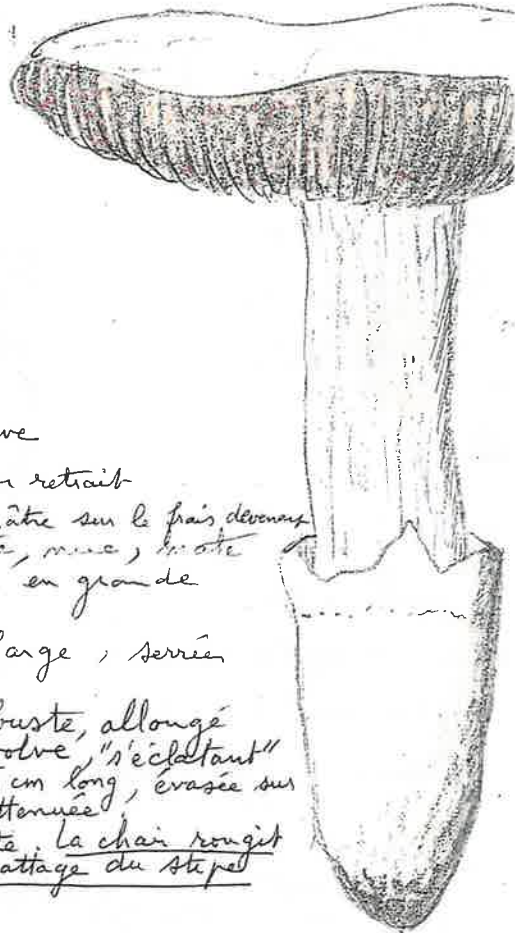 ve
retrait
âtre sur le frais, devenant
, nue, mate
en grande
large, serrées
buste, allongé
volve, "s'éclatant"
cm long, évasée sur
ttenuée
te. La chair rougit
attage du stipe